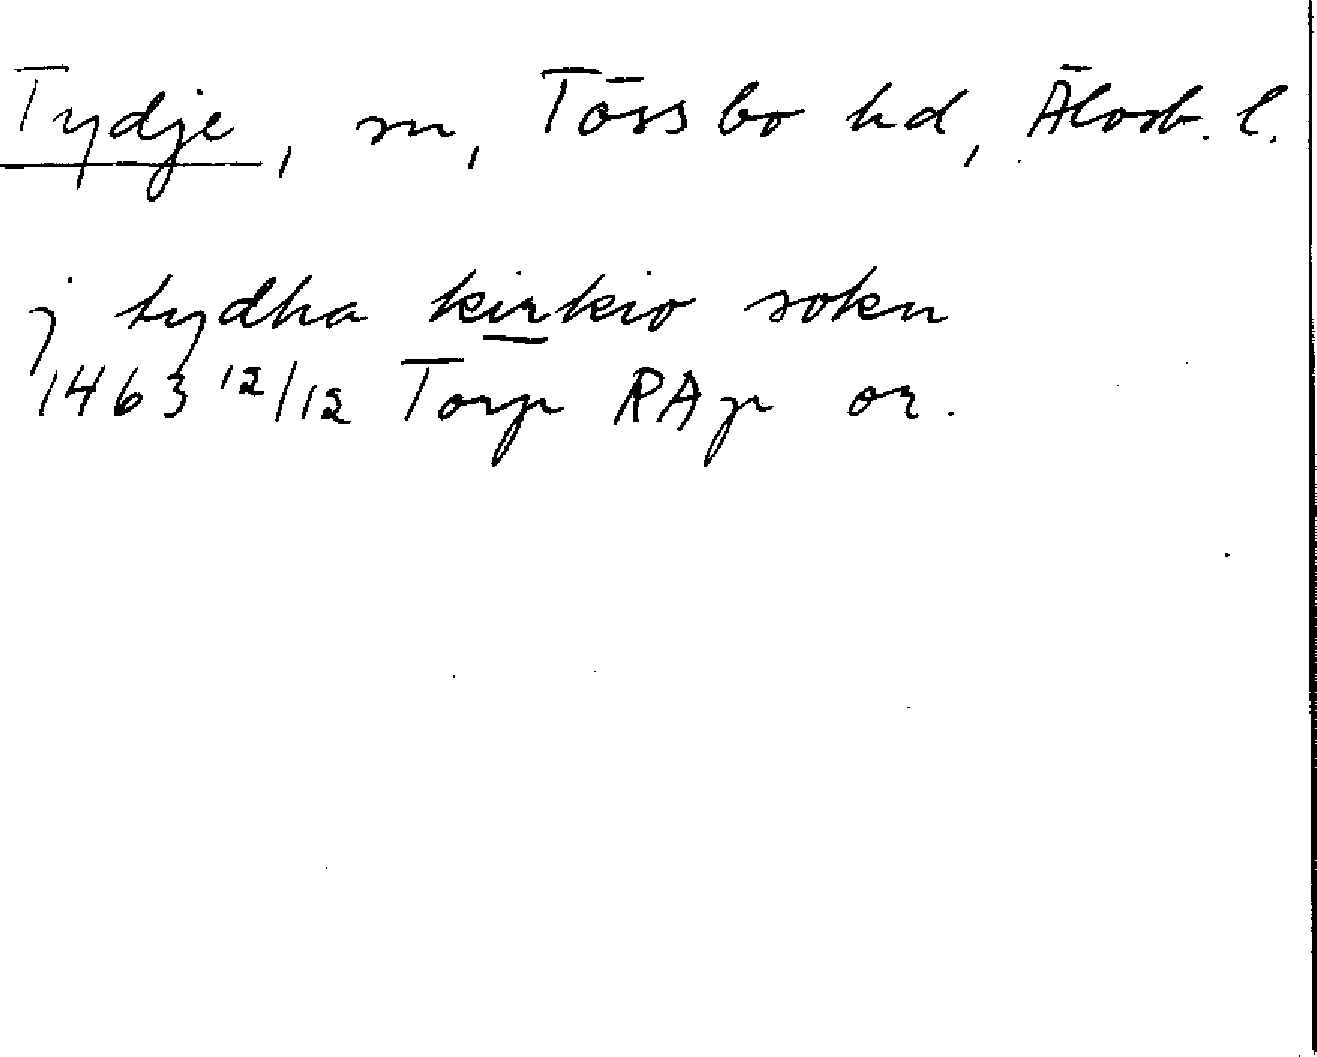 Tydje, sn, Tössbo hd, Älvsb. l.
j tydha kirkio sokn
1463 12/12 Torp RAp or.